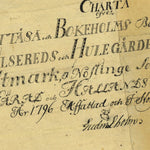 CHARTA
öfver
TTÅSA och BOKEHOLMS B
LSEREDS och HULEGÅRDE
tmark, Nösslinge So
ARÅL och HALLANDS
År 1796 Affattad och
af